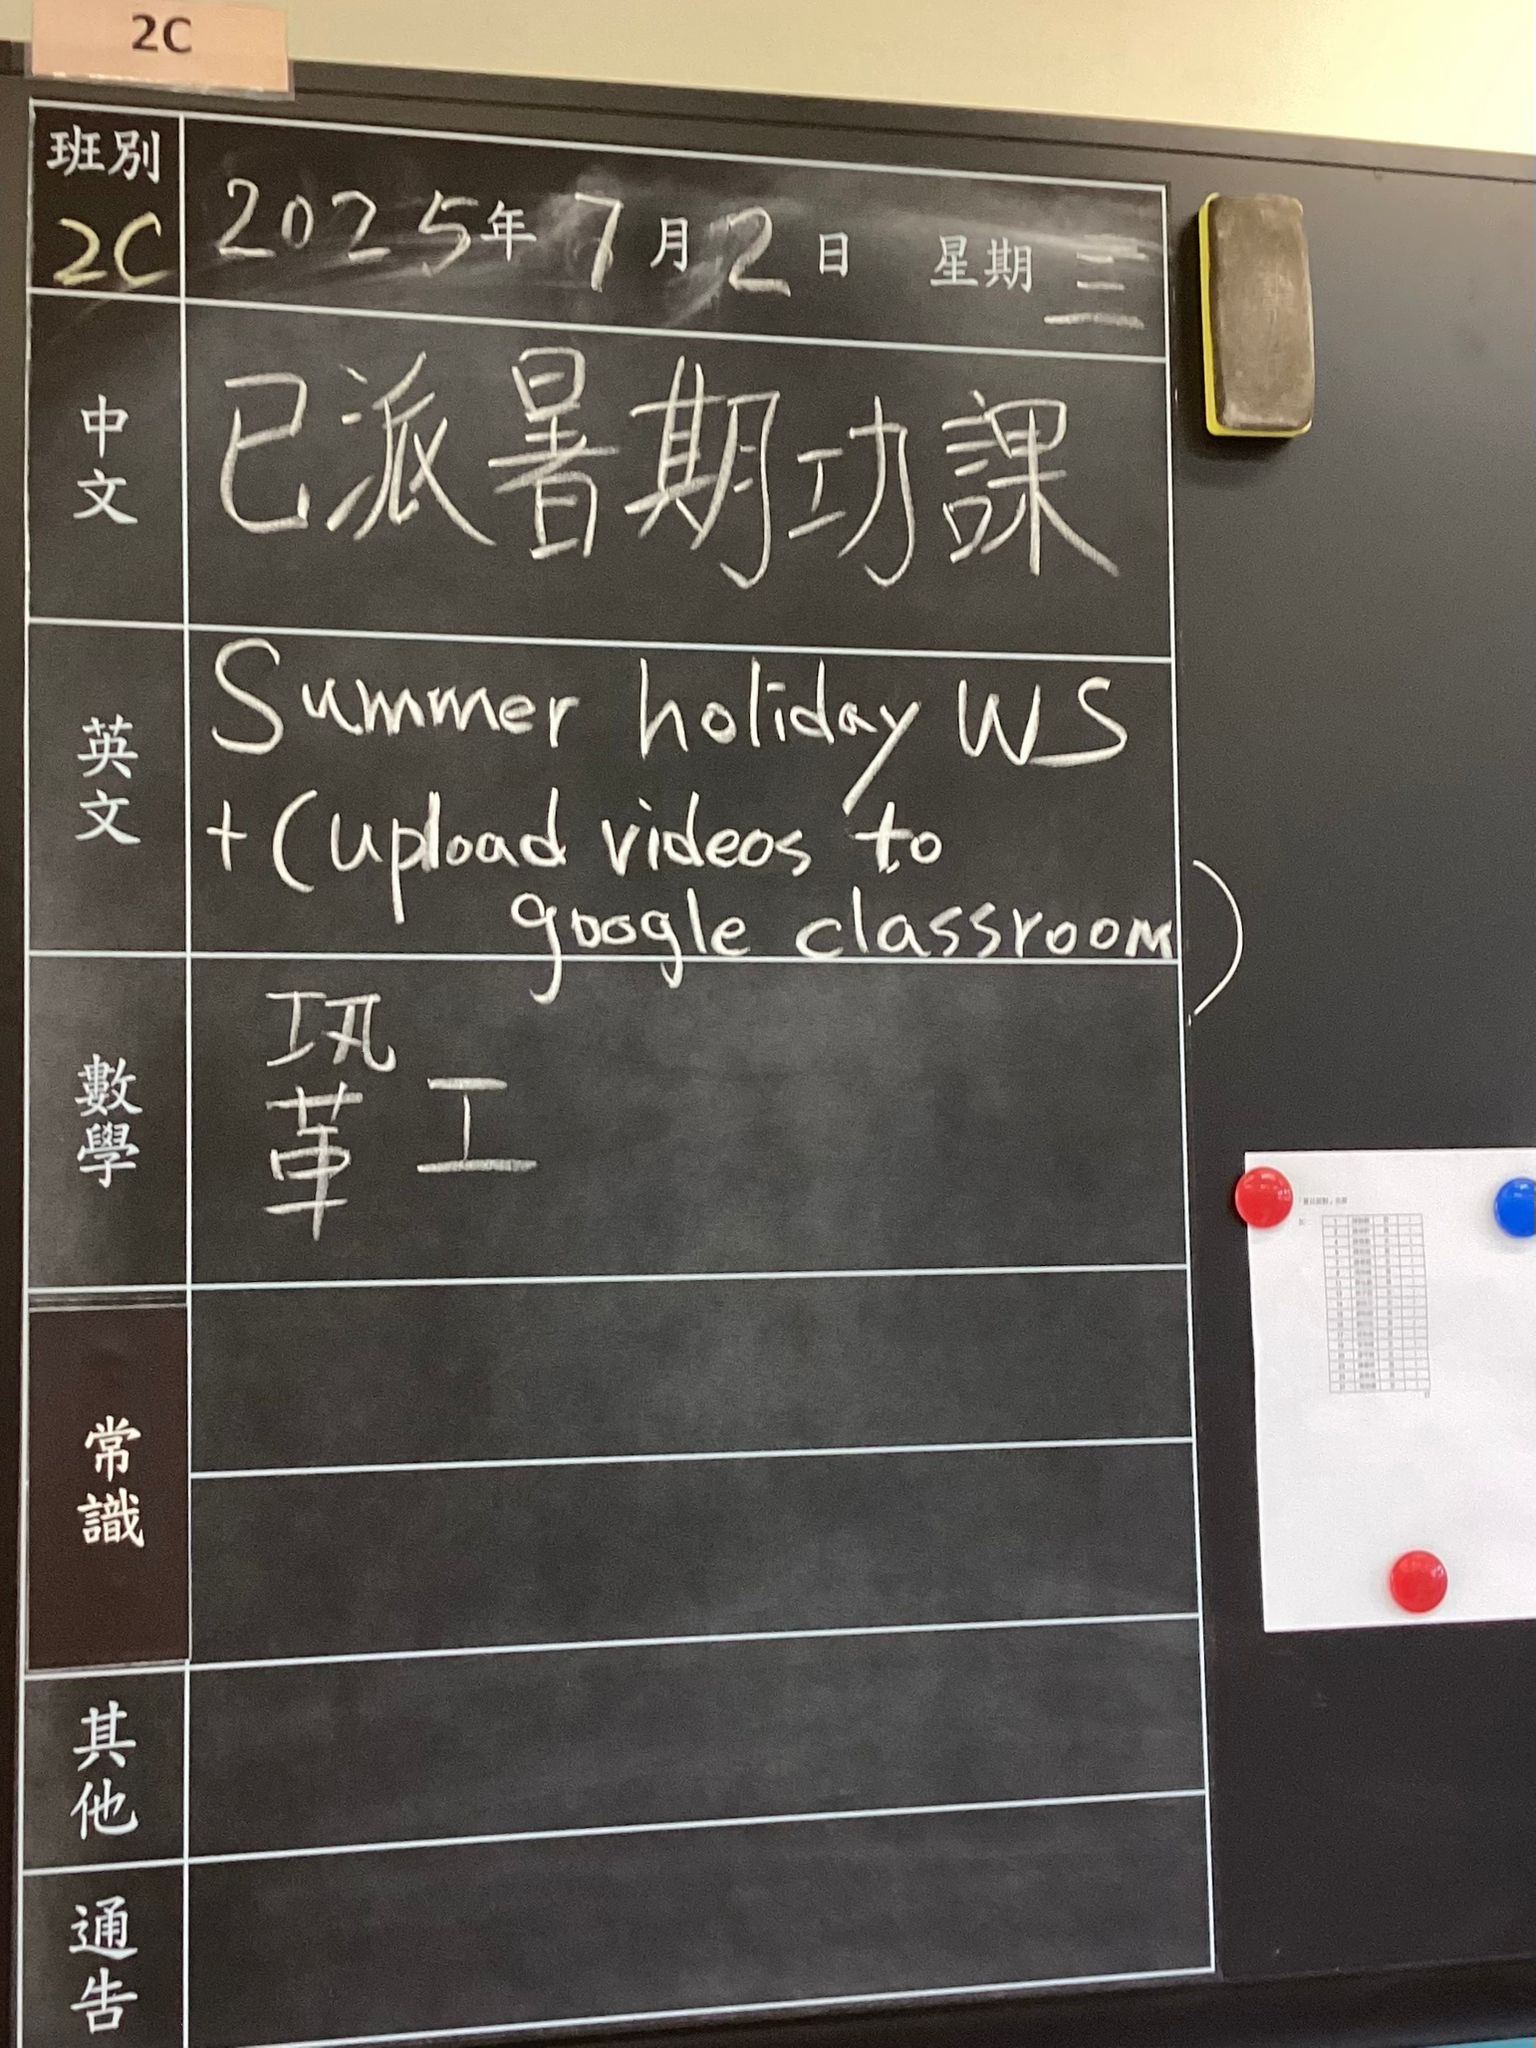 2C
班別
2C
2025年7月2日 星期三
中文
已派暑期功課
英文
Summer holiday WS
+(upload videos to
google classroom)
數學
鞏工
常識
其他
通告